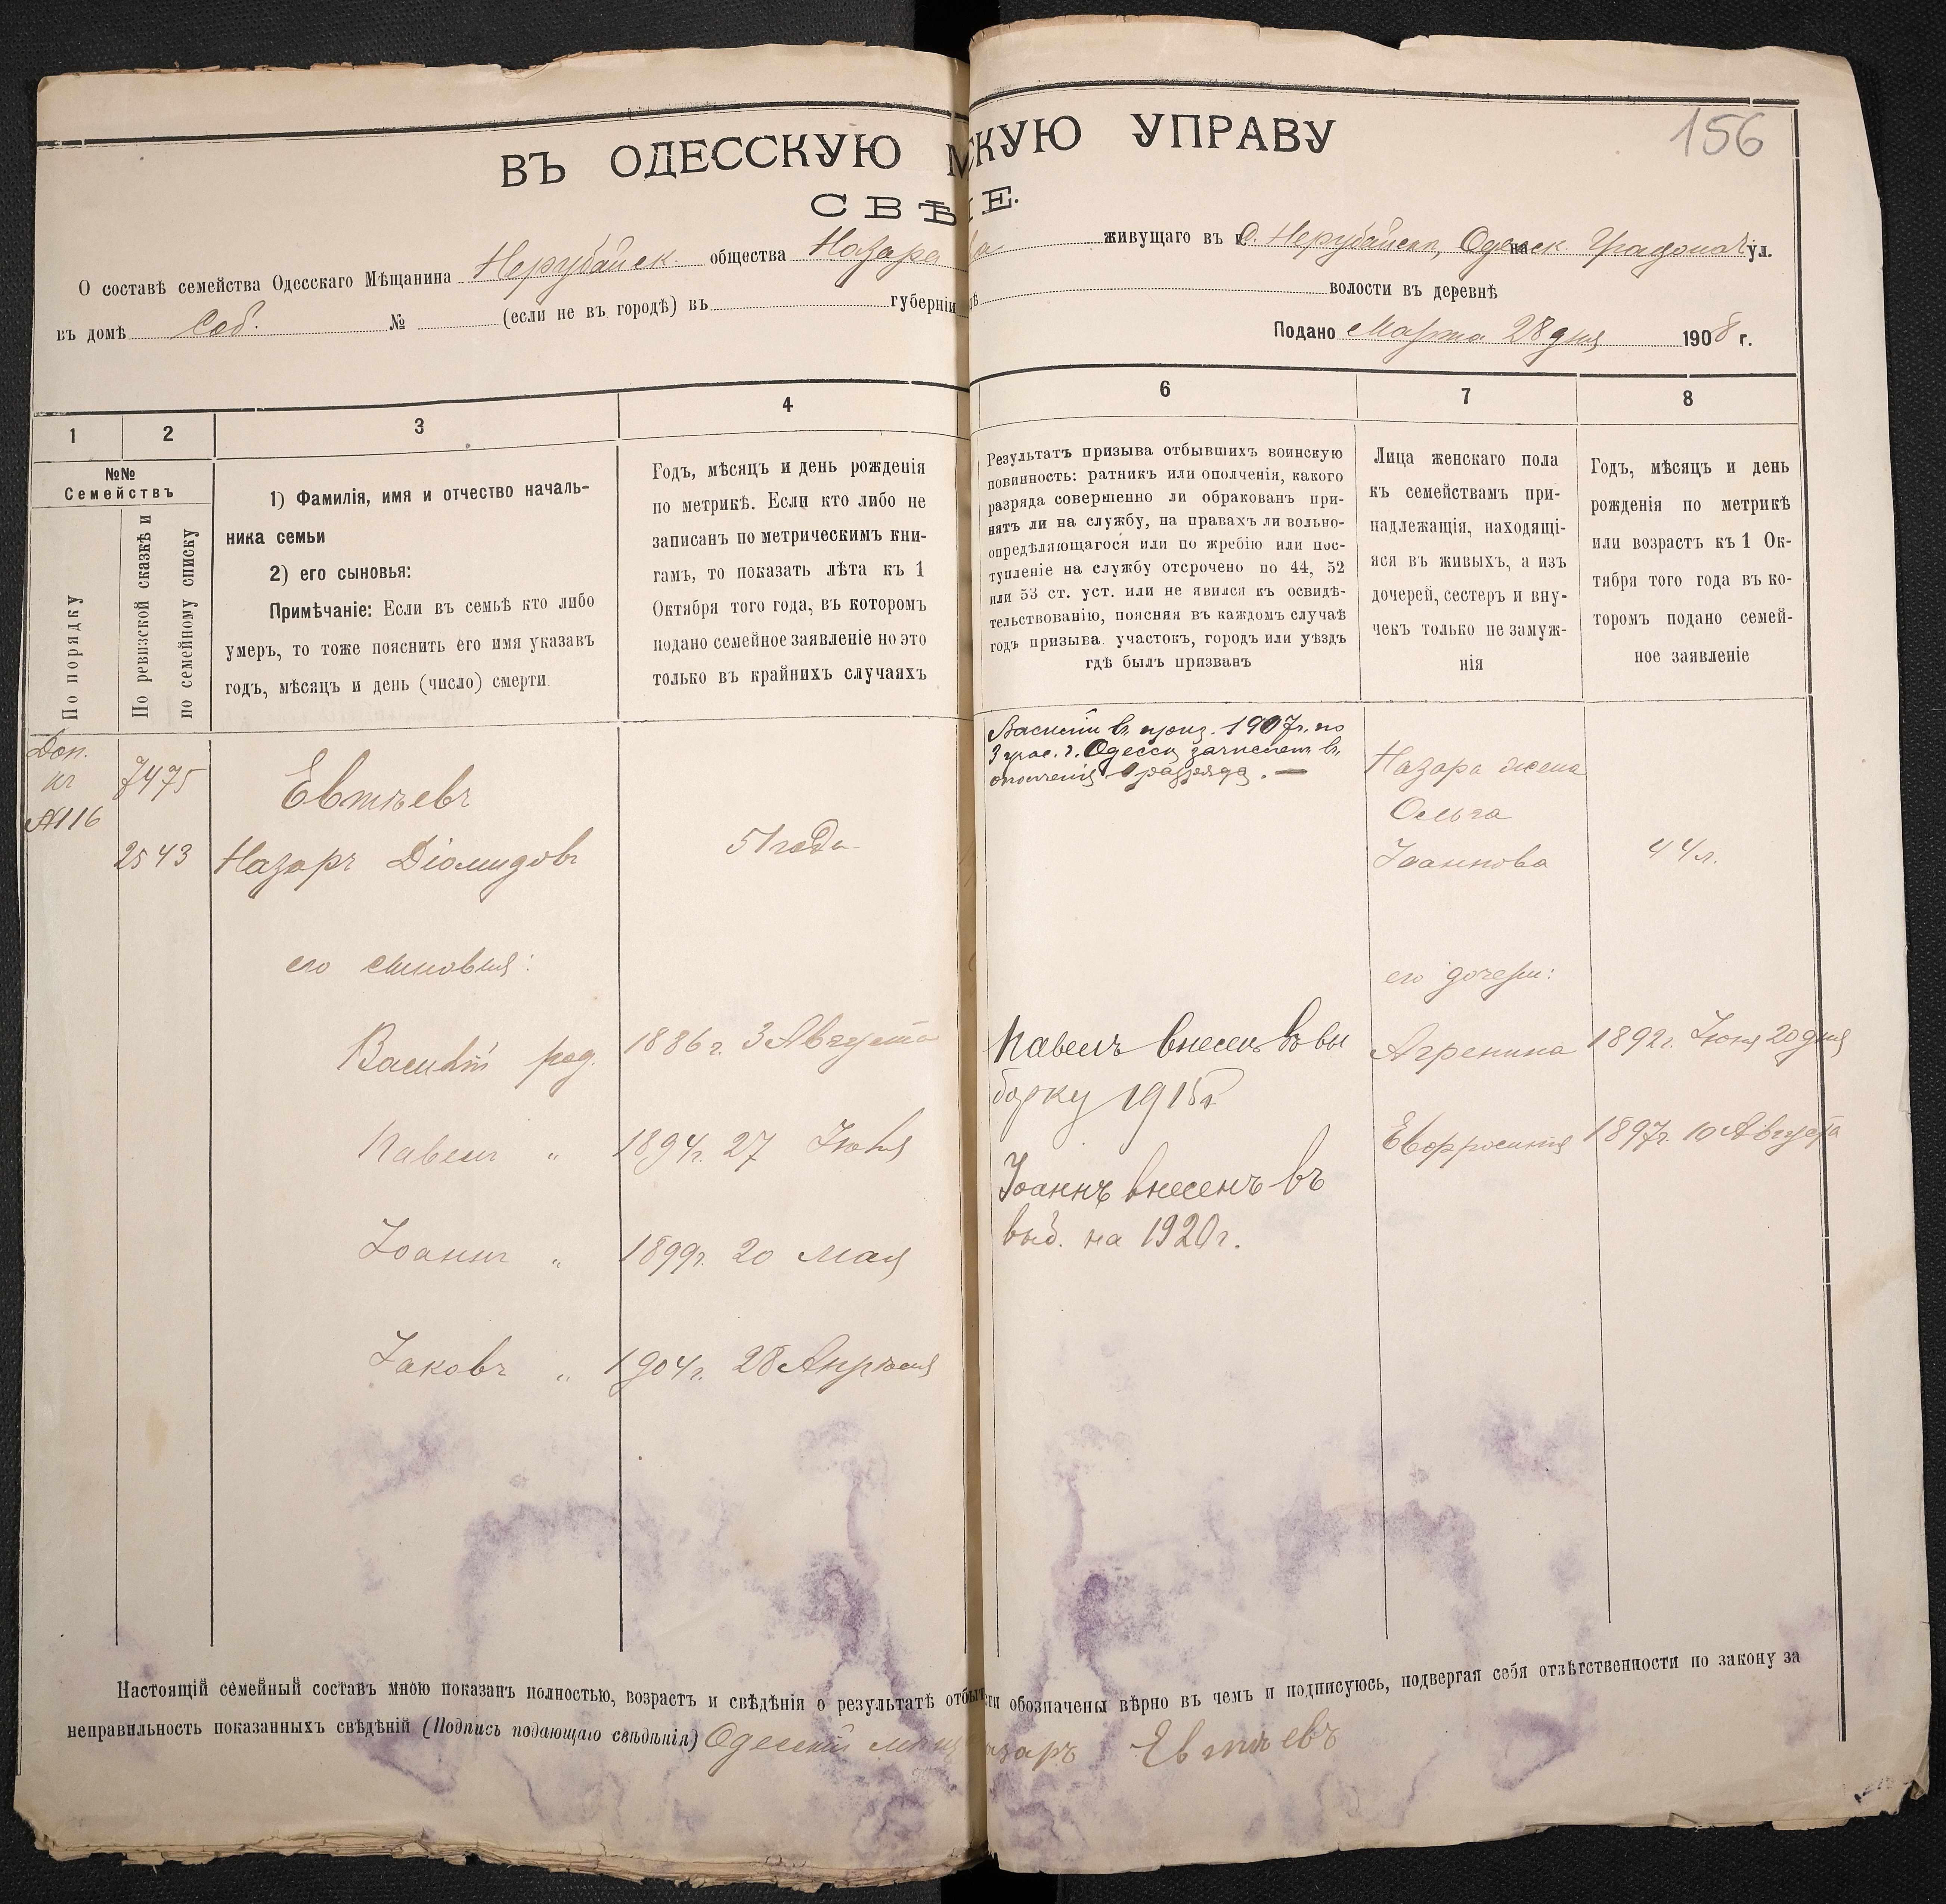 156
ВЪ ОДЕССКУЮ М СКУЮ УПРАВУ
СВѢ Е.
О составѣ семейства Одесскаго Мѣщанина Нерубайск. общества Назара живущаго въ с. Нерубайск, Одесск. Градонач. ул.
въ домѣ Соб. № (если не въ городѣ) въ губерніи волости въ деревнѣ
Подано Марта 28 дня 1908 г.
1 2 3 4 6 7 8
№№
Семействъ
По порядку
По ревизской сказкѣ и
по семейному списку
1) Фамилія, имя и отчество началь-
ника семьи
2) его сыновья:
Примѣчаніе: Если въ семьѣ кто либо
умеръ, то тоже пояснить его имя указавъ
годъ, мѣсяцъ и день (число) смерти
Годъ, мѣсяцъ и день рожденія
по метрикѣ. Если кто либо не
записанъ по метрическимъ кни-
гамъ, то показать лѣта къ 1
Октября того года, въ которомъ
подано семейное заявленіе но это
только въ крайнихъ случаяхъ
Результатъ призыва отбывшихъ воинскую
повинность: ратникъ или ополченія, какого
разряда совершенно ли обракованъ при-
нятъ ли на службу, на правахъ ли вольно-
опредѣляющагося или по жребію или пос-
тупленіе на службу отсрочено по 44, 52
или 53 ст. уст. или не явился къ освидѣ-
тельствованію, поясняя въ каждомъ случаѣ
годъ призыва. участокъ, городъ или уѣздъ
гдѣ былъ призванъ
Лица женскаго пола
къ семействамъ при-
надлежащія, находящі-
яся въ живыхъ, а изъ
дочерей, сестеръ и вну-
чекъ только не замуж-
нія
Годъ, мѣсяцъ и день
рожденія по метрикѣ
или возрастъ къ 1 Ок-
тября того года въ ко-
торомъ подано семей-
ное заявленіе
Доп.
к
№116
7475
2543
Евтѣевъ
Назаръ Діомидовъ
51 года
его сыновья:
Василій род. 1886 г. 3 Августа
Павелъ " 1894 г. 27 Іюня
Іоаннъ " 1899 г. 20 Мая
Іаковъ " 1904 г. 28 Апрѣля
Василій в приз. 1907 г. по
3 учас. г. Одессы зачислен в
ополченія разряда. —
Павелъ внесенъ въ вы
борку 1915 г
Іоаннъ внесенъ въ
выб. на 1920 г.
Назара жена
Ольга
Іоаннова
44 л.
его дочери:
Агрепина 1892 г. Іюня 20 дня
Евфросинія 1897 г. 10 Августа
Настоящій семейный составъ мною показанъ полностью, возрастъ и свѣдѣнія о результатѣ отбы сти обозначены вѣрно въ чемъ и подписуюсь, подвергая себя отвѣтственности по закону за
неправильность показанныхъ свѣдѣній (Подпись подающаго свѣдѣнія) Одесскій мѣщ азаръ Евтѣевъ